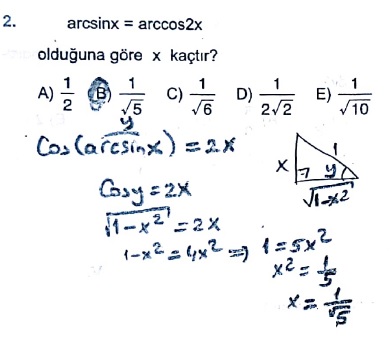 2. arcsinx = arccos2x
olduğuna göre x kaçtır?
A) 1/2 B) 1/√5 C) 1/√6 D) 1/2√2 E) 1/√10
y
Cos(arcsinx) = 2x
x 1 y √1-x²
Cosy = 2x
√1-x² = 2x
1-x² = 4x² => 1 = 5x²
x² = 1/5
x = 1/√5